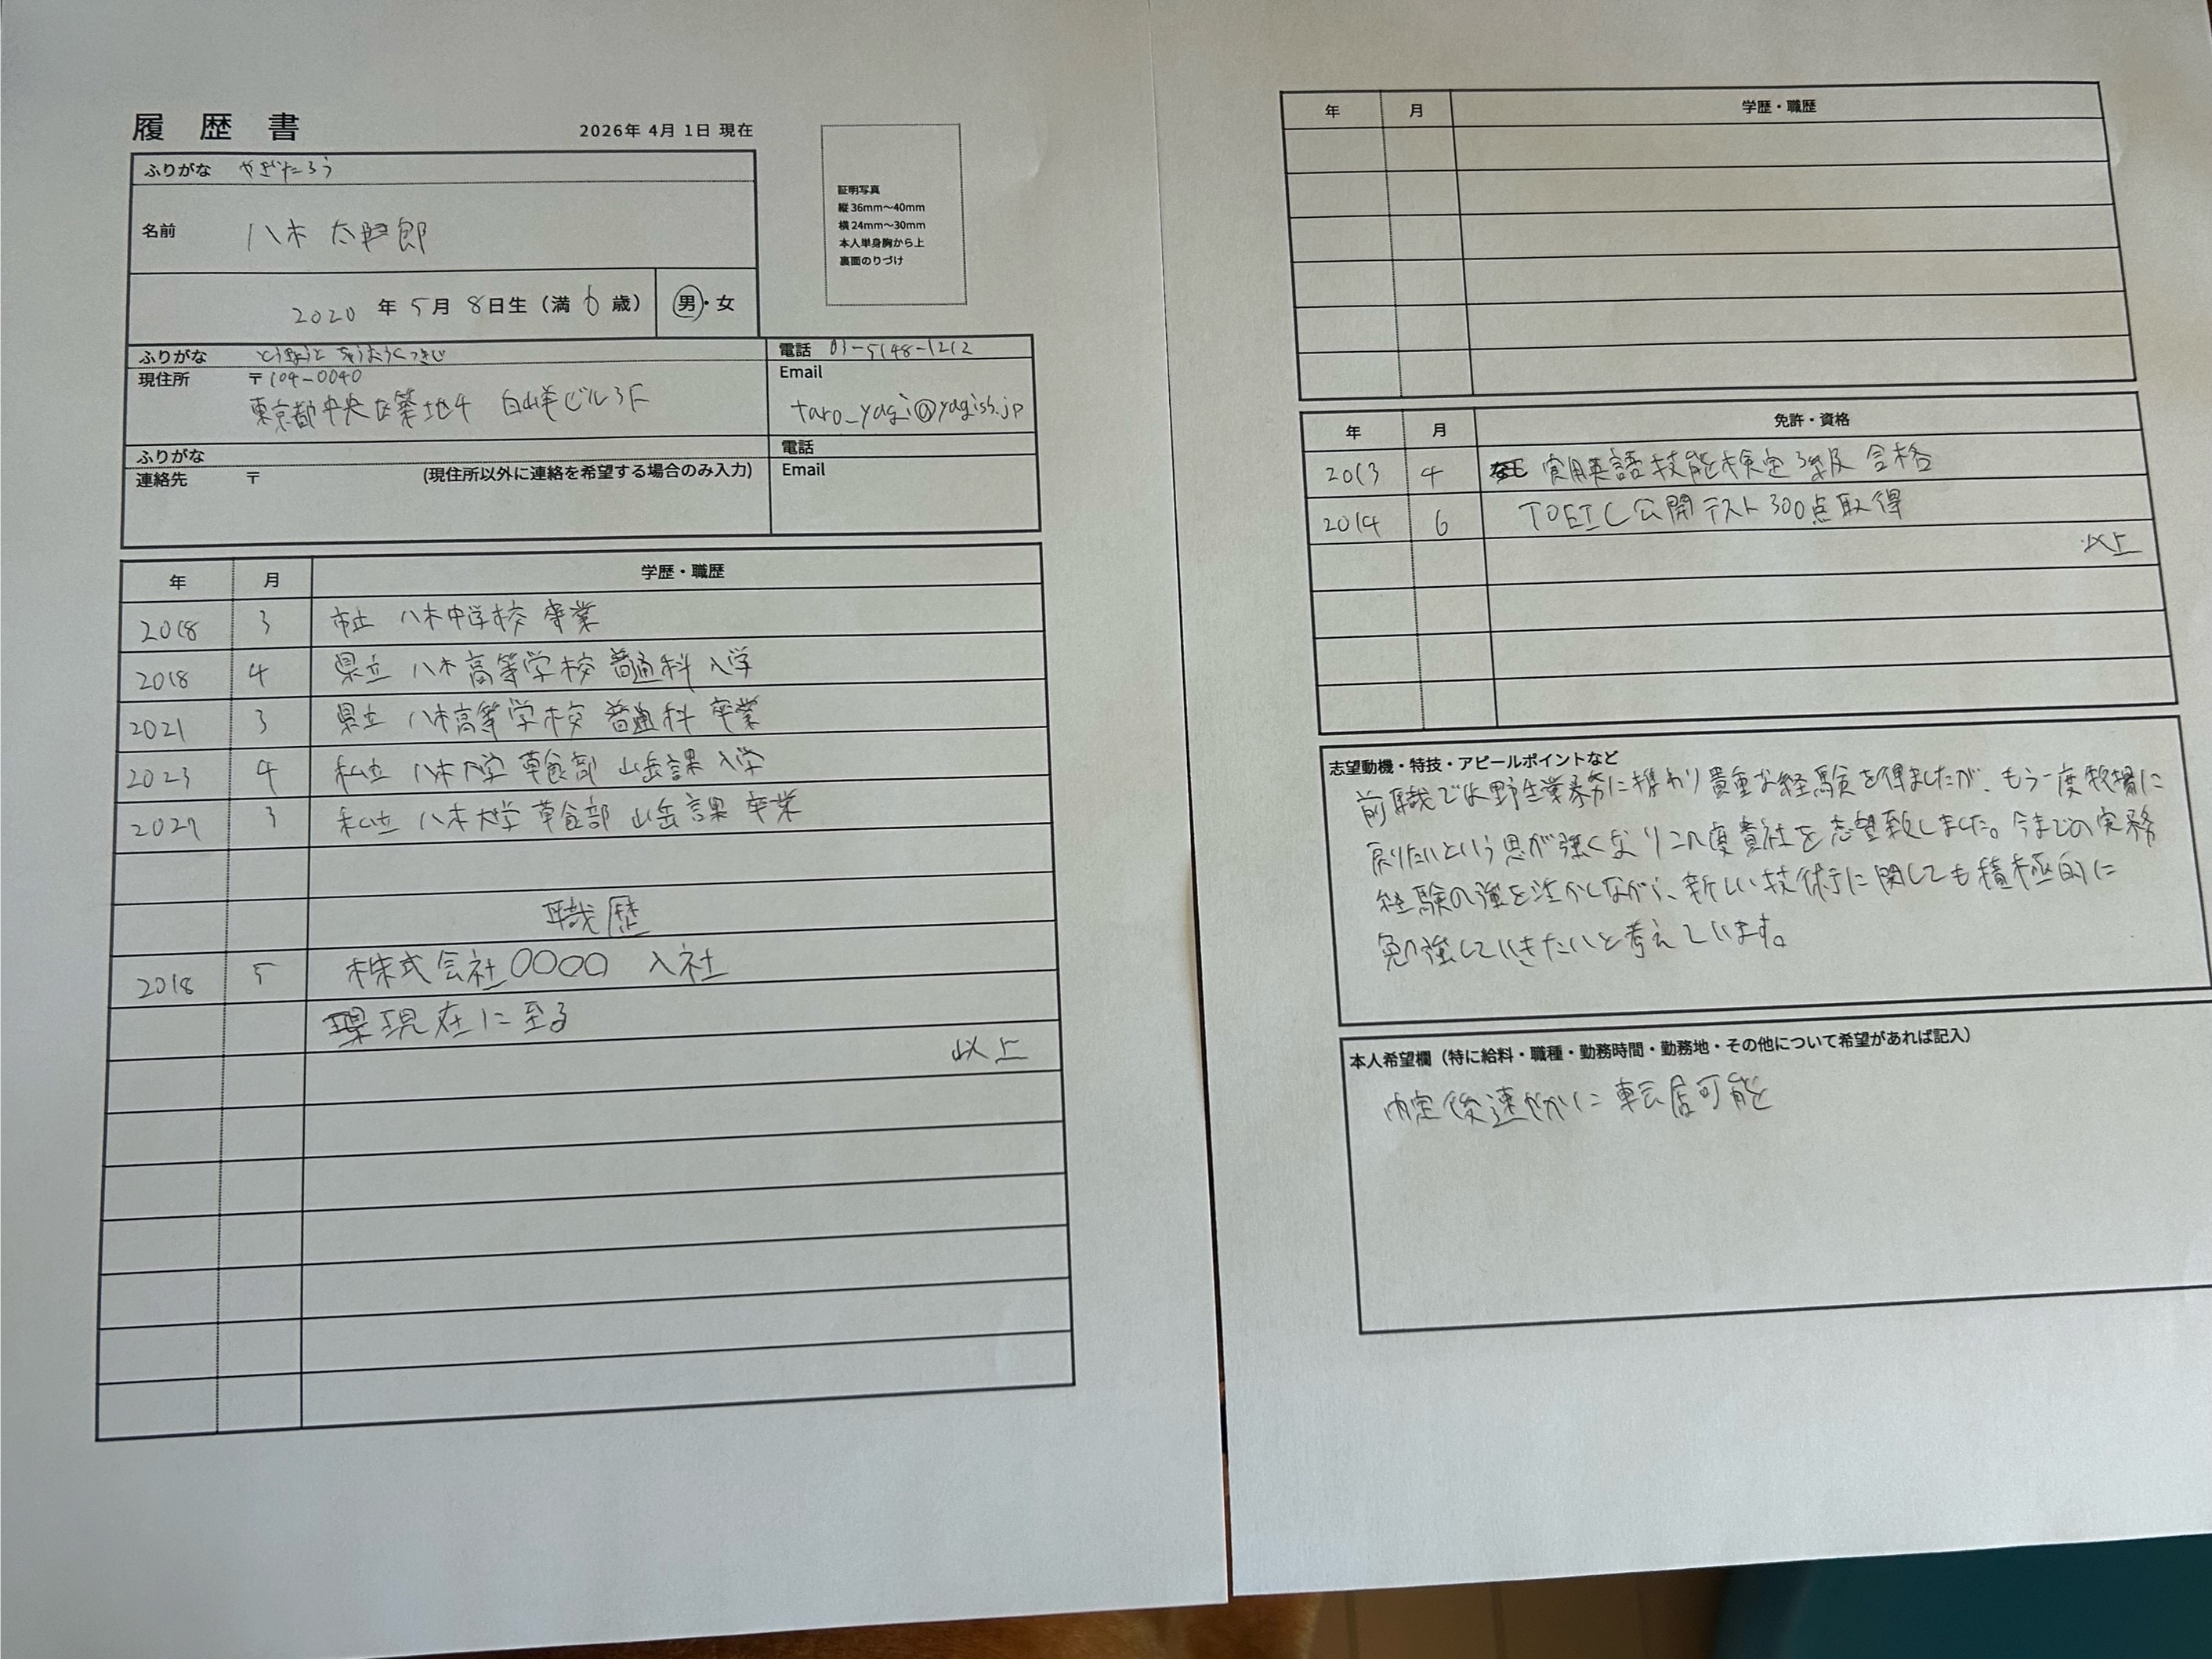 履歴書
2026年 4月 1日 現在
ふりがな やぎたろう
名前 八木 太郎
2020 年 5月 8日生 (満 6 歳) 男・女
証明写真
縦36mm〜40mm
横24mm〜30mm
本人単身胸から上
裏面のりづけ
ふりがな とうきょうと ちゅうおうく つきじ
電話 03-5148-1212
現住所 〒104-0040
東京都中央区築地4 白山羊ビル3F
Email
taro_yagi@yagish.jp
ふりがな
電話
連絡先 〒 (現住所以外に連絡を希望する場合のみ入力)
Email
年 月 学歴・職歴
2018 3 市立 八木中学校 卒業
2018 4 県立 八木高等学校 普通科 入学
2021 3 県立 八木高等学校 普通科 卒業
2023 4 私立 八木大学 草食部 山岳課 入学
2027 3 私立 八木大学 草食部 山岳課 卒業
職歴
2018 5 株式会社〇〇〇〇 入社
現在に至る
以上
年 月 学歴・職歴
年 月 免許・資格
2013 4 実用英語技能検定 3級 合格
2014 6 TOEIC公開テスト300点取得
以上
志望動機・特技・アピールポイントなど
前職では野生業務に携わり貴重な経験を得ましたが、もう一度牧場に
戻りたいという思が強くなりこの度貴社を志望致しました。今までの実務
経験の強を活かしながら、新しい技術に関しても積極的に
勉強していきたいと考えています。
本人希望欄 (特に給料・職種・勤務時間・勤務地・その他について希望があれば記入)
内定後速やかに転居可能